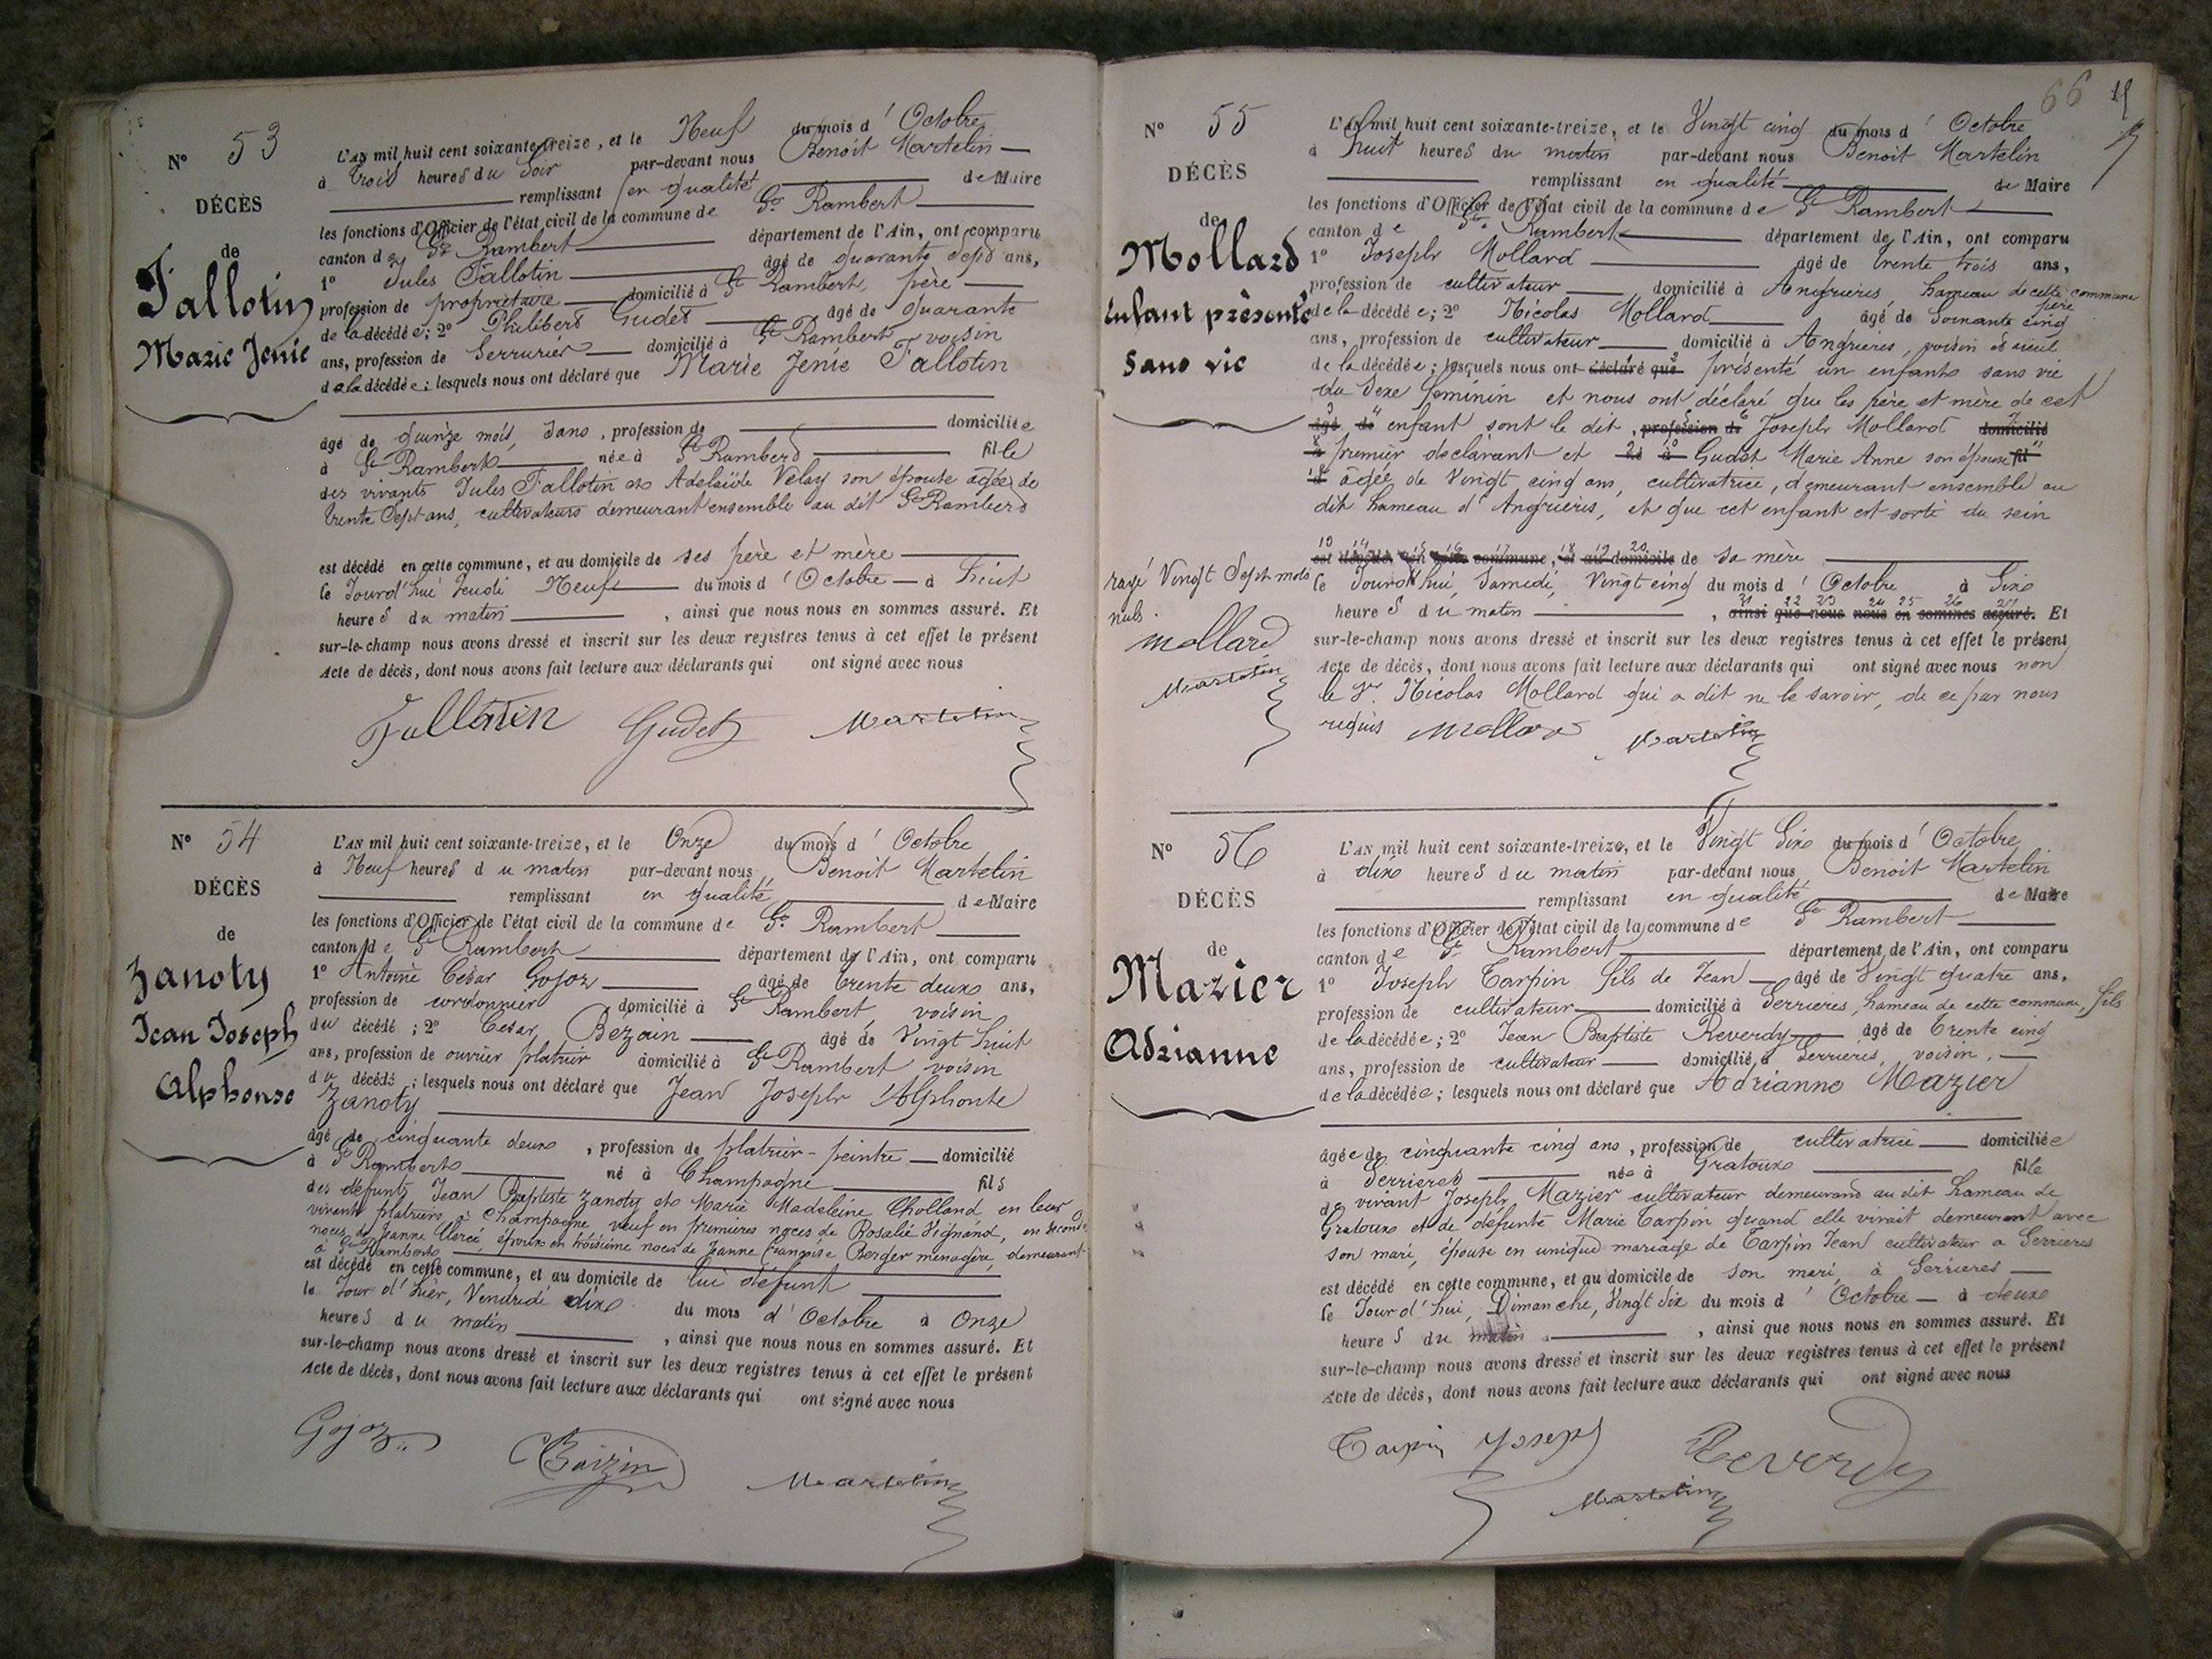 N° 53
DÉCÈS
de
Fallotin
Marie Jenie
L'AN mil huit cent soixante-treize, et le Neuf du mois d'Octobre
à trois heures du Soir par-devant nous Benoit Martelin
remplissant en qualité de Maire
les fonctions d'Officier de l'état civil de la commune de St Rambert
canton de St Rambert département de l'Ain, ont comparu
1° Jules Fallotin âgé de quarante sept ans,
profession de propriétaire domicilié à St Rambert, père
de la décédée; 2° Philibert Gudet âgé de quarante
ans, profession de Serrurier domicilié à St Rambert voisin
de la décédée; lesquels nous ont déclaré que Marie Jenie Fallotin
âgé de quinze mois, sans, profession de domiciliée
à St Rambert née à St Rambert fille
des vivants Jules Fallotin et Adelaïde Velay son épouse âgée de
trente sept ans, cultivateurs demeurant ensemble au dit St Rambert
est décédé en cette commune, et au domicile de ses père et mère
le Jourd'hui Jeudi Neuf du mois d'Octobre à huit
heures du matin, ainsi que nous nous en sommes assuré. Et
sur-le-champ nous avons dressé et inscrit sur les deux registres tenus à cet effet le présent
Acte de décès, dont nous avons fait lecture aux déclarants qui ont signé avec nous
Fallotin Gudet Martelin
N° 54
DÉCÈS
de
Zanoty
Jean Joseph
Alphonse
L'AN mil huit cent soixante-treize, et le Onze du mois d'Octobre
à Neuf heures du matin par-devant nous Benoit Martelin
remplissant en qualité de Maire
les fonctions d'Officier de l'état civil de la commune de St Rambert
canton de St Rambert département de l'Ain, ont comparu
1° Antoine Cesar Gojoz âgé de trente deux ans,
profession de cordonnier domicilié à St Rambert, voisin
du décédé; 2° Cesar Bezain âgé de Vingt huit
ans, profession de ouvrier platrier domicilié à St Rambert voisin
du décédé; lesquels nous ont déclaré que Jean Joseph Alphonse
Zanoty
âgé de cinquante deux, profession de platrier-peintre domicilié
à St Rambert né à Champagne fils
des défunts Jean Baptiste Zanoty et Marie Madeleine Cholland en leur
vivant platriers à Champagne veuf en premières noces de Rosalie Vignand, en seconde
noces de Jeanne Clerc, époux en troisième noces de Jeanne Françoise Berger ménagère, demeurant
à St Rambert
est décédé en cette commune, et au domicile de lui défunt
le Jour d'hier, Vendredi dix du mois d'Octobre à Onze
heures du matin, ainsi que nous nous en sommes assuré. Et
sur-le-champ nous avons dressé et inscrit sur les deux registres tenus à cet effet le présent
Acte de décès, dont nous avons fait lecture aux déclarants qui ont signé avec nous
Gojoz Martelin
66
N° 55
DÉCÈS
de
Mollard
Enfant présenté
sans vie
L'AN mil huit cent soixante-treize, et le Vingt cinq du mois d'Octobre
à huit heures du matin par-devant nous Benoit Martelin
remplissant en qualité de Maire
les fonctions d'Officier de l'état civil de la commune de St Rambert
canton de St Rambert département de l'Ain, ont comparu
1° Joseph Mollard âgé de trente trois ans,
profession de cultivateur domicilié à Angrieres, hameau de cette commune père
de la décédée; 2° Nicolas Mollard âgé de Soixante cinq
ans, profession de cultivateur domicilié à Angrieres, voisin et aïeul
de la décédée; lesquels nous ont déclaré que présenté un enfant sans vie
du Sexe féminin et nous ont déclaré que les père et mère de cet
âgé de enfant sont le dit, profession de Joseph Mollard domicilié
à premier déclarant et né à Gudet Marie Anne son épouse fil
âgée de Vingt cinq ans, cultivatrice, demeurant ensemble au
dit hameau d'Angrieres, et que cet enfant est sorti du sein
est décédé en cette commune, et au domicile de sa mère
le Jourd'hui, Samedi, Vingt cinq du mois d'Octobre à Six
heures du matin, ainsi que nous nous en sommes assuré. Et
sur-le-champ nous avons dressé et inscrit sur les deux registres tenus à cet effet le présent
Acte de décès, dont nous avons fait lecture aux déclarants qui ont signé avec nous non
le Sr Nicolas Mollard qui a dit ne le savoir, de ce par nous
requis Mollard Martelin
rayé Vingt Sept mots
nuls.
Mollard
Martelin
N° 56
DÉCÈS
de
Mazier
Adrianne
L'AN mil huit cent soixante-treize, et le Vingt Six du mois d'Octobre
à dix heures du matin par-devant nous Benoit Martelin
remplissant en qualité de Maire
les fonctions d'Officier de l'état civil de la commune de St Rambert
canton de St Rambert département de l'Ain, ont comparu
1° Joseph Tarpin fils de Jean âgé de Vingt quatre ans,
profession de cultivateur domicilié à Serrieres, hameau de cette commune, fils
de la décédée; 2° Jean Baptiste Reverdy âgé de trente cinq
ans, profession de cultivateur domicilié à Serrieres, voisin.
de la décédée; lesquels nous ont déclaré que Adrianne Mazier
âgée de cinquante cinq ans, profession de cultivatrice domiciliée
à Serrieres née à Gratoux fille
de vivant Joseph Mazier cultivateur demeurant au dit hameau de
Gratoux et de défunte Marie Tarpin quand elle vivait demeurant avec
son mari, épouse en unique mariage de Tarpin Jean cultivateur à Serrieres
est décédé en cette commune, et au domicile de son mari, à Serrieres
le Jourd'hui, Dimanche, Vingt Six du mois d'Octobre à deux
heures du matin, ainsi que nous nous en sommes assuré. Et
sur-le-champ nous avons dressé et inscrit sur les deux registres tenus à cet effet le présent
Acte de décès, dont nous avons fait lecture aux déclarants qui ont signé avec nous
Tarpin Joseph Reverdy
Martelin